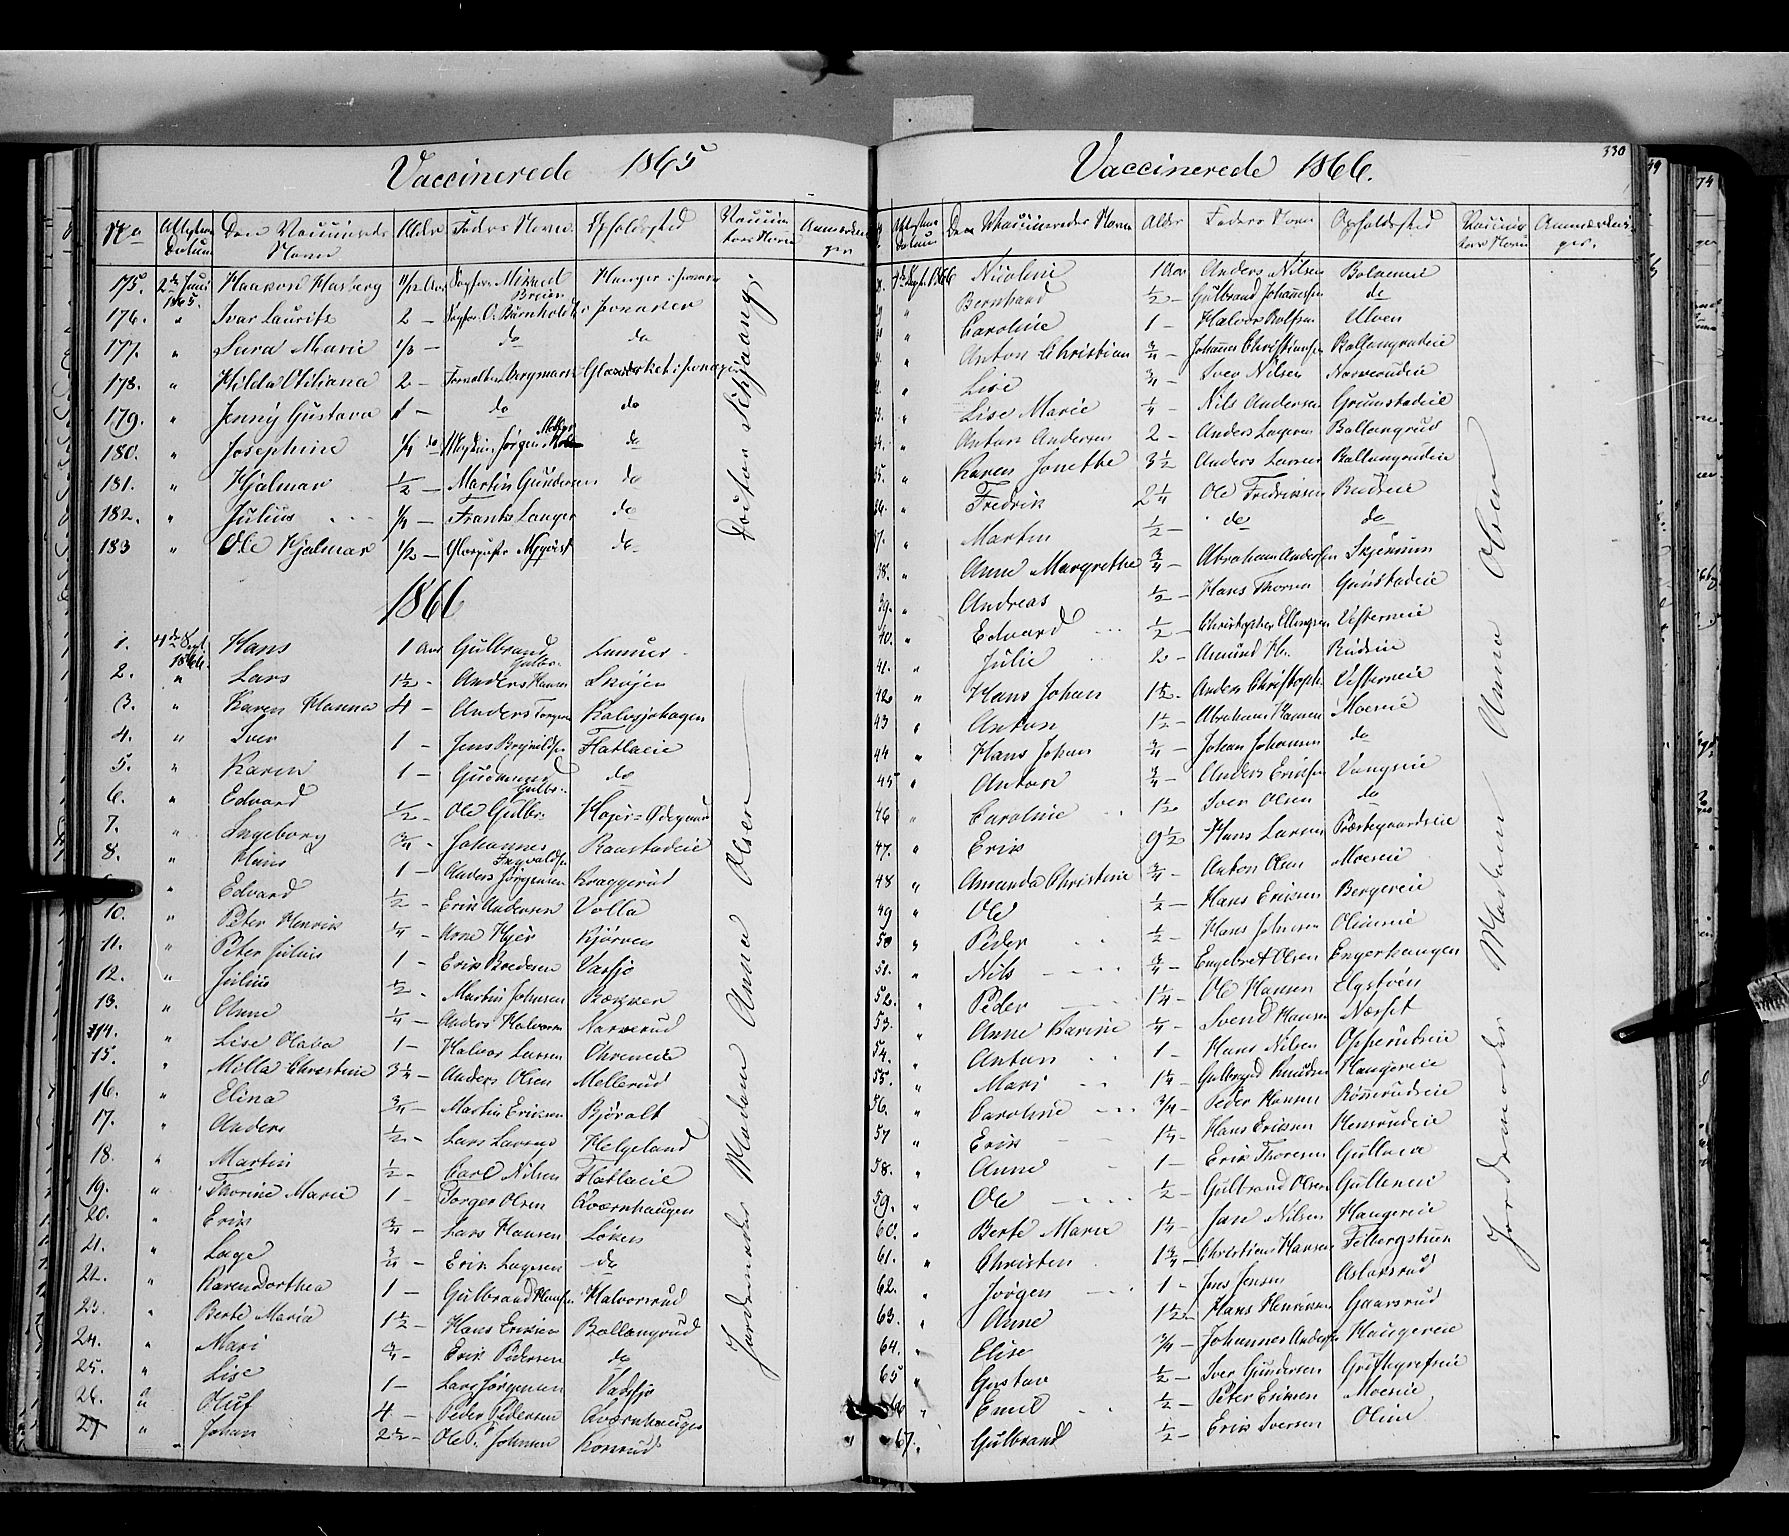 Vaccinerede 1865
No Attestens Datum Den Vaccineredes Navn Alder Faders Navn Opholdssted Vaccinatørs Navn Anmærkninger
175. 2de Juni 1865. Haakon Hasberg 11/12 Aar Mikael Hanger i
176. " Ivar Laurits 2 — O. Barnholdt
177. " Lura Marie 1/3 — do do
178. " Hilda Viliana 2 — Bergmark
179. " Jenny Gustava 1 — do do
180. " Josephine 1/4 do Jørgen do
181. " Hjalmar 1/2 — Martin Gundersen do
182. " Julius 1/4 — Frants Langer do
183 " Ole Hjalmar 1/2 — do
Doctor Schjaang
1866
1. 4de Sept. 1866. Hans 1 Aar Gulbrand Gulbr. Lunner
2. " Lars 1 1/2 - Anders Hansen Skøjen
3. " Karen Hanna 4 - Anders Torgers Kalvsjøhagen
4. " Iver 1 - Jens Brynilds Flatlaeie
5. " Karen 1 — Gudmund Gulbr. do
6. " Edvard 1/2 - Ole Gulbr. Højer-Ødegaard
7. " Ingeborg 3/4 - Johannes Ingvalds Raastadeie
8. " Hans 1 — Anders Jørgensen Kraggerud
" Edvard 1/2 — Erik Andersen Volla
10. " Peter Henrik 1/4 — Arne Hjer Kjørven
11. " Peter Julius 1 — Erik Bredesen Vasjø
12. " Julius 1/2 - Martin Johnsen Bækken
13. " Anne 1/4 — Anders Halvorsn Narverud
14. " Lise Olava 1 - Halvor Larsen Ohreneie
15. " Milla Christine 3 1/4 - Anders Olsen Mellerud
16. " Elina 3/4 — Martin Eriksen Bjøralt
17. " Anders 1/2 - Lars Larsen Helgeland
18. " Martin 1/2 - Carl Nilsen Flatlaeie
19. " Thorine Marie 1 - Torger Olsen Kværnhaugen
20. " Erik 3/4 - Lars Hansen Løken
21. " Lage 3/4 - Erik Lagesen do
22. " Karen Dorthea 1 — Gulbrand Hansen Halvorsrud
23. " Berte Maria 1 1/2 - Hans Eriksen Ballangrud
24. " Mari 3/4 - Erik Pedersen do
25. " Lise 1 — Lars Jørgensen Vadsjø
26. " Oluf 4 — Peder Pedersen Kværnhaugen
27 " Johan 2 1/2 - Ole P. Johnsen Korsrud
Jordemoder Madam Anna Olsen
330
Vaccinerede 1866.
Attestens Datum Den Vaccineredes Navn Alder Faders Navn Opholdssted Vaccinatørs Navn Anmærkninger.
4de Sept. 1866 Nicoline 1 Aar Anders Nilsen
" Bernhard 1/2 — Gulbrand Johannessen do
" Caroline 1 - Halvor Rolfsen Ulven
" Anton Christian 3/4 — Johannes Christiansen Ballangrudeie
" Lise 3/4 — Iver Nilsen Narverudeie
33. " Lise Marie 1/4 — Nils Andersen Grunstadeie
34. " Anton Andersen 2 - Anders Lagesen Ballangrud
35. " Karen Jonette 3 1/2 Anders Larsen Ballangrudeie
36. " Fredrik 2 1/4 Ole Fredriksen Rudseie
37. " Martin 1/2 — do do
38. " Anne Margrethe 3/4 — Abraham Andersen Skjerum
39. " Andreas 1/2 — Hans Thoren
40. " Edvard 1/2 — Christopher Ellingsen Vesterneie
41. " Julie 2 - Amund Hs. Rudseie
42 " Hans Johan 1 1/2 - Anders Christoph. Vesterneie
43 " Anton 1 1/2 — Abraham Hansen Moeseie
44 " Hans Johan 3/4 — Johan Johannsen do
45 " Anton 3/4 - Anders Eriksen Vangseie
46 " Caroline 1 1/2 Iver Olsen do
47. " Erik 9 1/2 Hans Larsen Præstegaardseie
48 " Amanda Christine 3/4 — Anton Olsen Moeseie
49 " Ole 1/2 — Hans Eriksen Bergereie
50 " Peder 1/2 — Hans Johnsen Olimeie
51. " Nils 3/4 — Engebret Olsen Engerhaugen
52. " Peder 1 1/4 — Ole Hansen Elgstøen
53. " Anne Karine 1/4 — Svend Hansen Nærset
54. " Anton 1 - Hans Nilsen Opperudseie
55. " Mari 1 1/4 — Gulbrand Knudsen Haugereie
56. " Caroline 3/4 - Peder Hansen Rønnerudseie
57 " Erik 1 1/4 - Hans Eriksen Hensrudeie
58. " Anne 1 — Erik Thoresen Gulleneie
59. " Ole 1/2 — Gulbrand Olsen Gulleneie
60. " Berte Marie 1 1/4 - Nilsen Haugereie
61. " Christen 1 3/4 — Christian Hansen
62. " Jørgen 1 - Jens Jensen Aslaksrud
63. " Anne 1 1/2 Hans Henriksen Gaarsrud
64. " Elise 3/4 — Johannes Anders Haugereie
65 " Gustav 1/2 — Iver Gundersen Griftegrefseie
66 " Emil 1/2 — Peter Eriksen Moeseie
67. " Gulbrand 1/2 — Erik Iversen Olim
Jordemoder Madam Anna Olsen